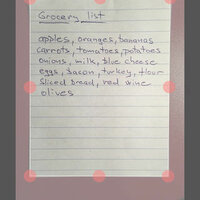 Grocery list
apples, oranges, bananas
carrots, tomatoes, potatoes
onions, milk, blue cheese
eggs, bacon, turkey, flour
Sliced bread, red wine
olives